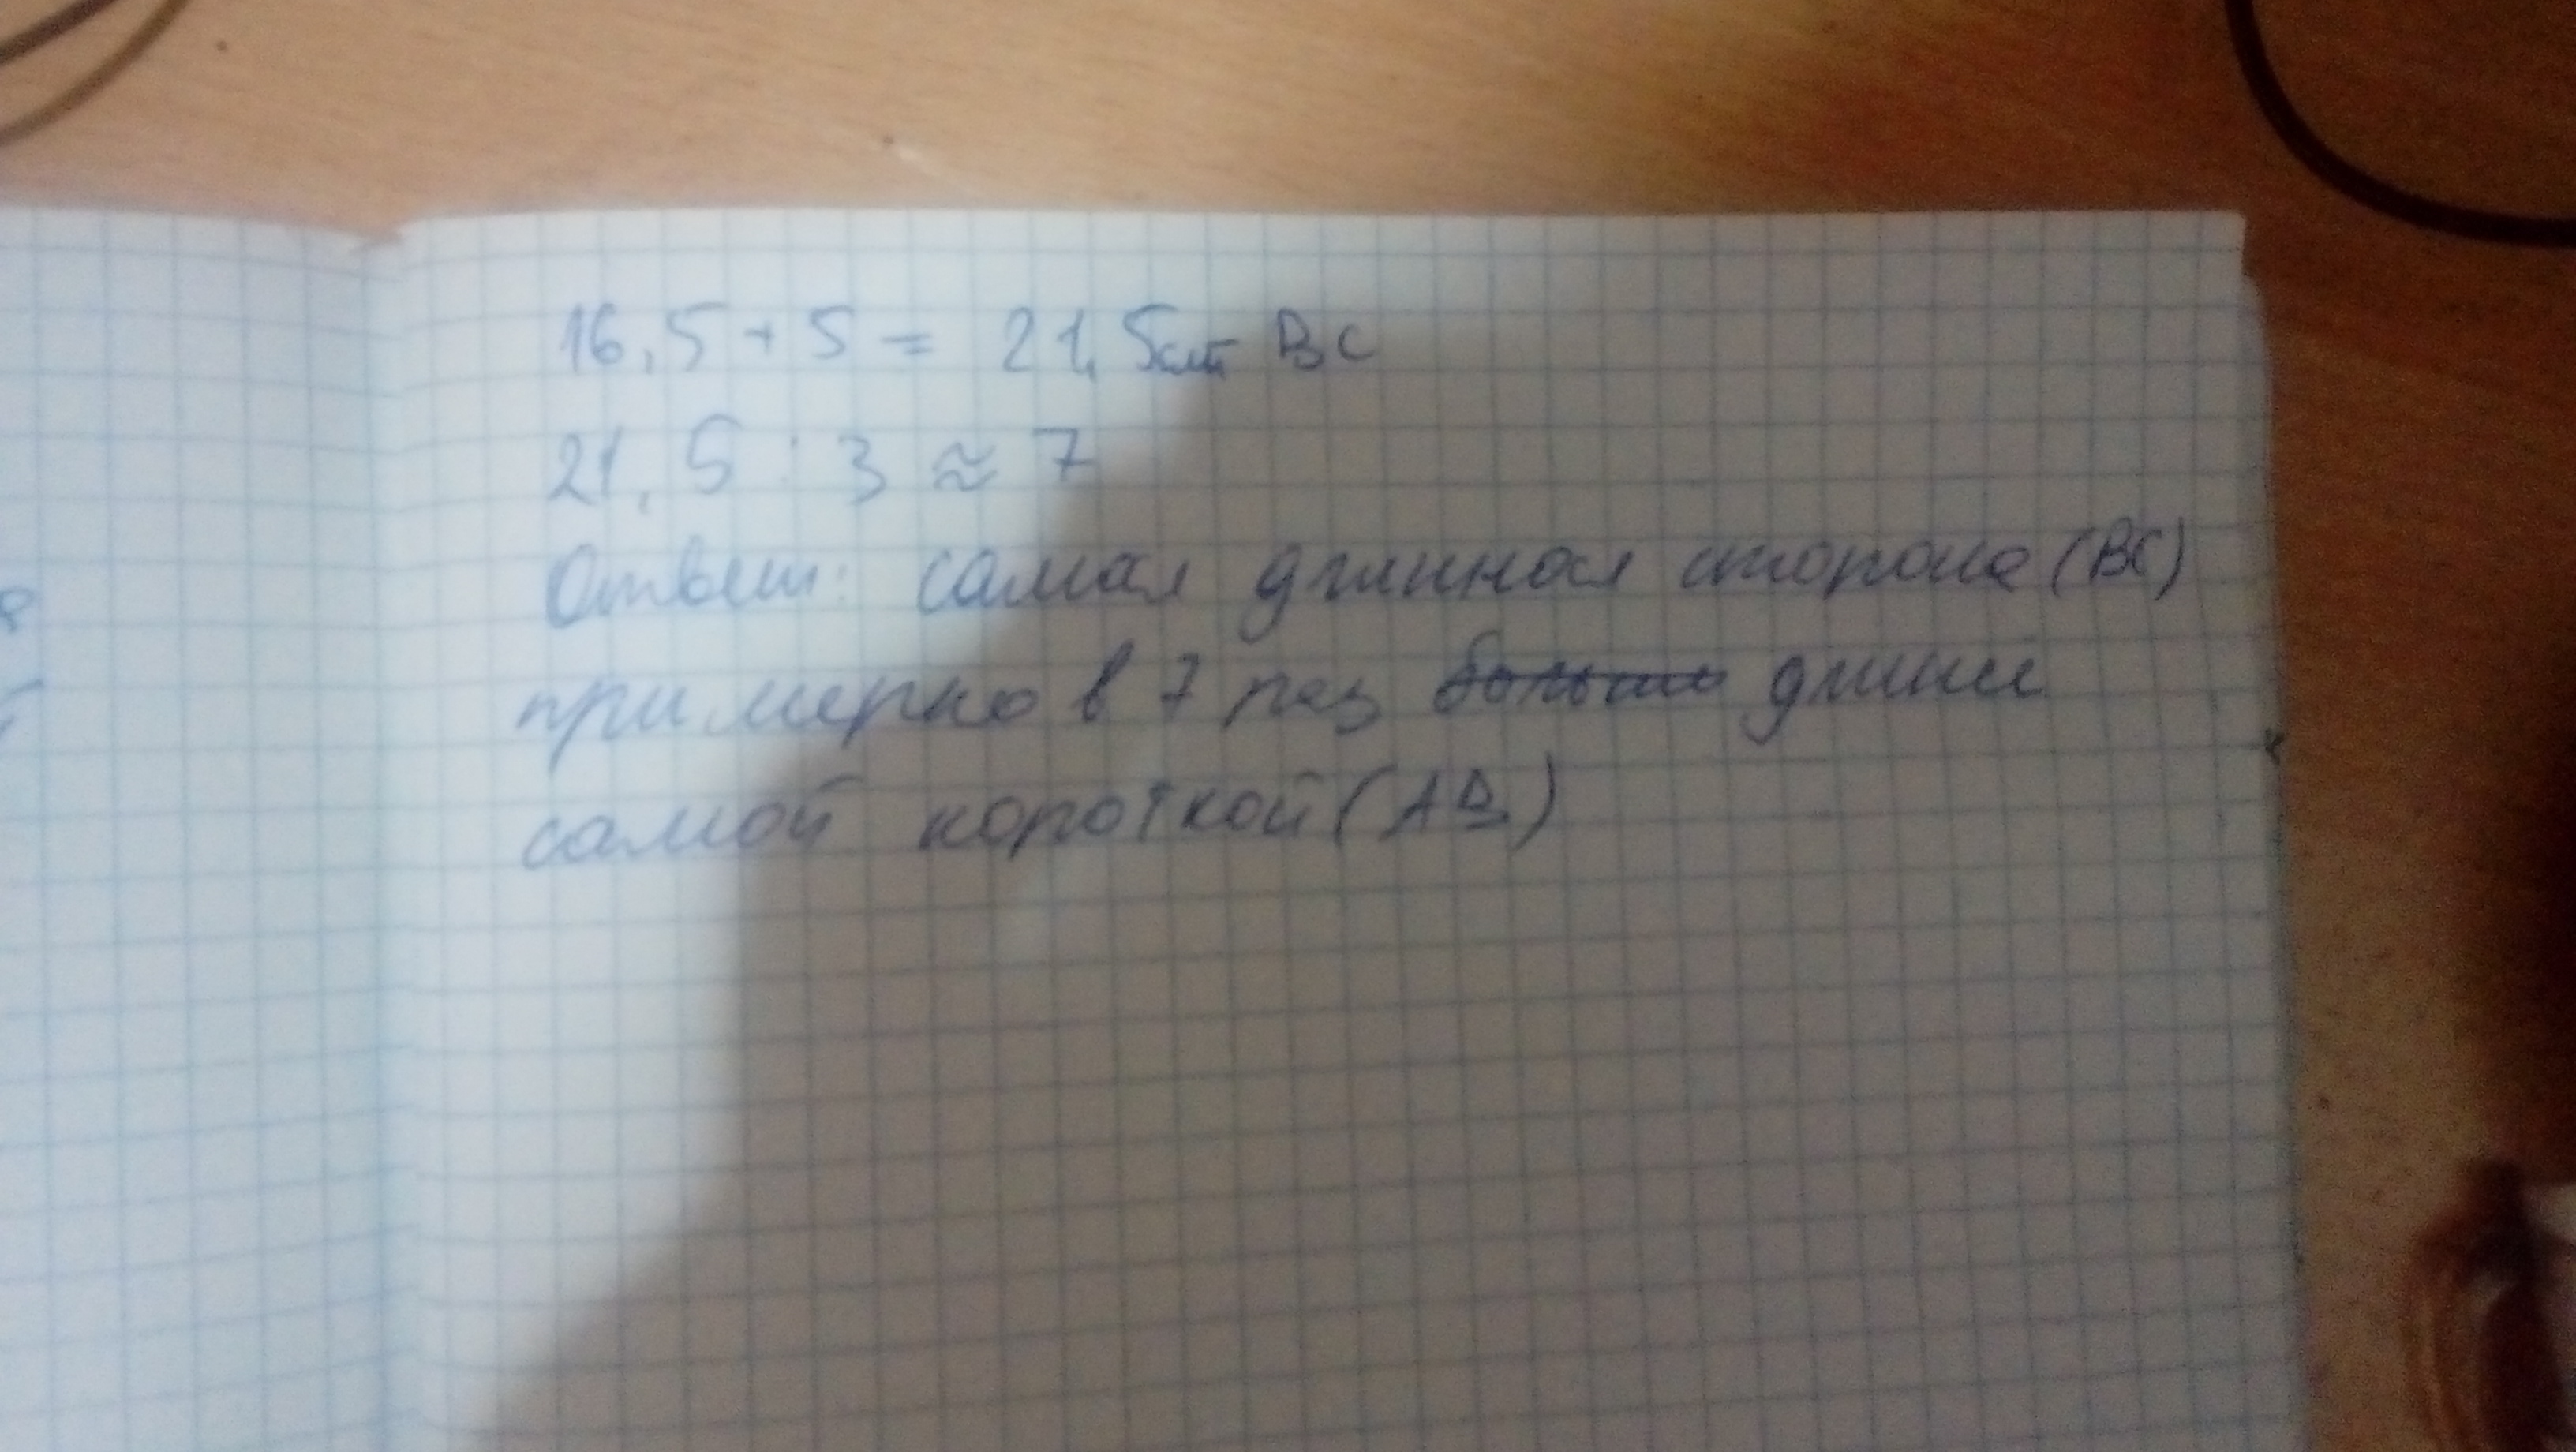 16,5 + 5 = 21,5см BC
21,5 : 3 ≈ 7
Ответ: самая длинная сторона (BC)
примерно в 7 раз больше длины
самой короткой (AD)